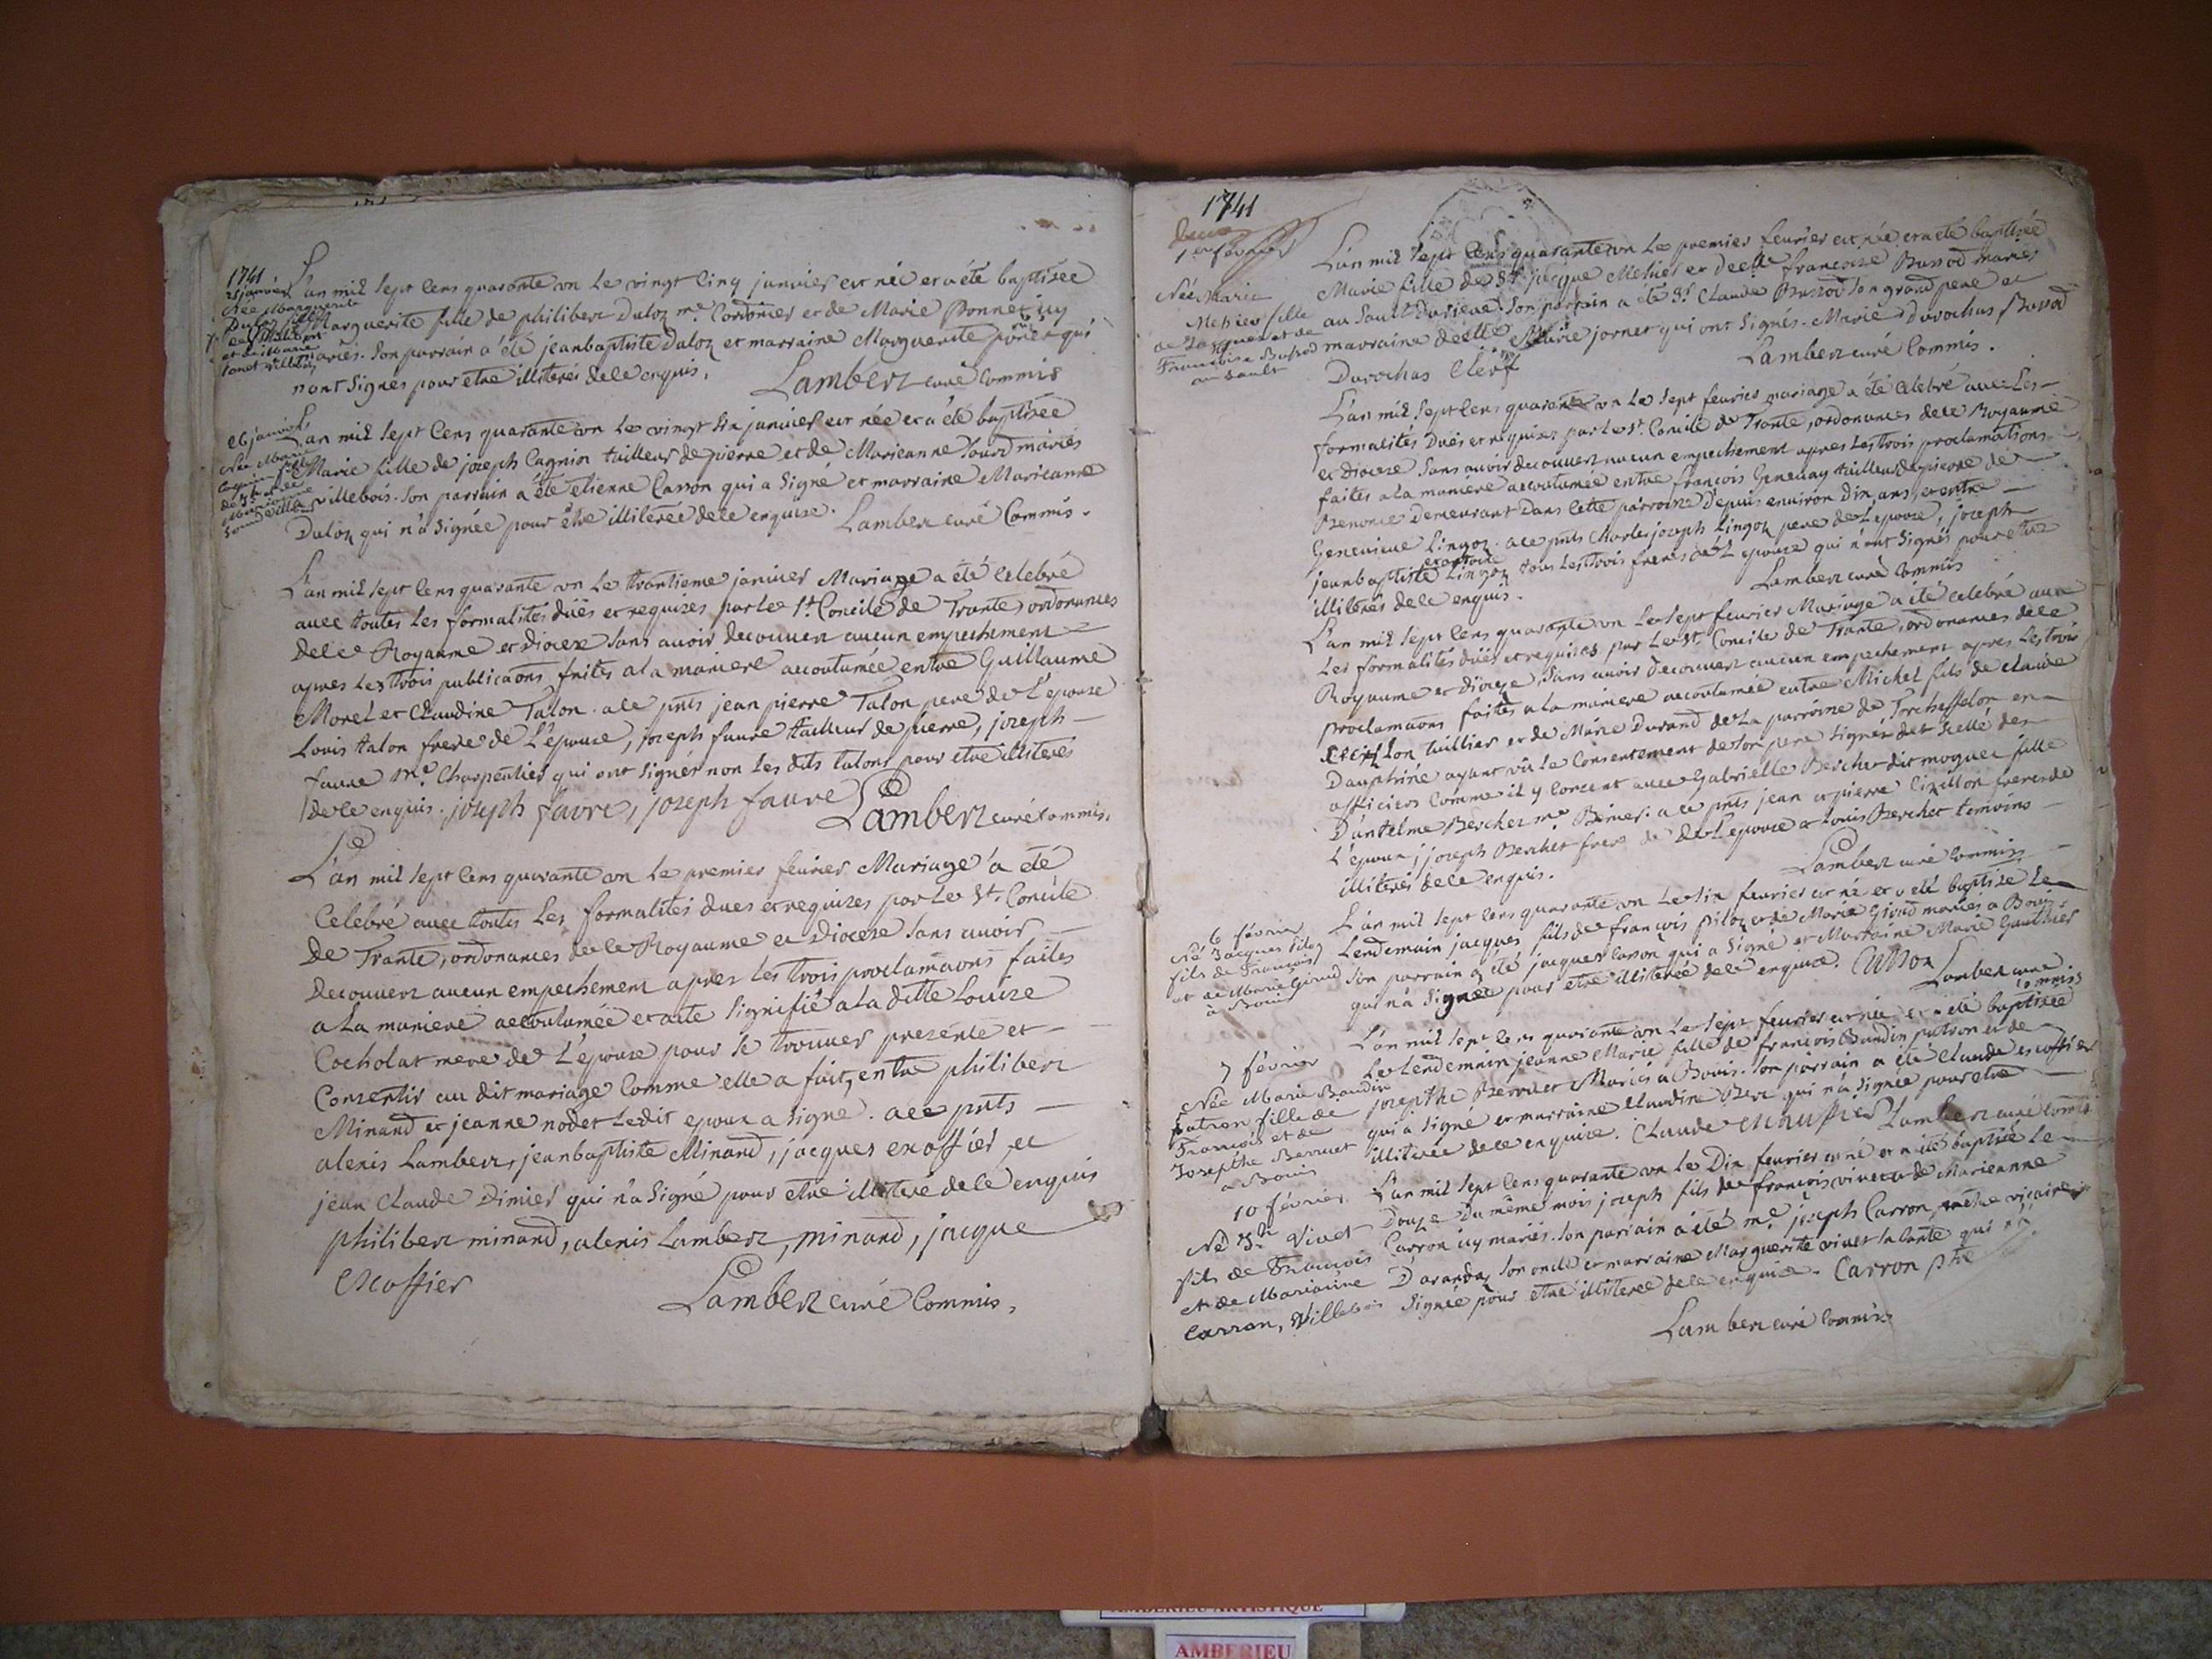 1741
25 janvier
Née Marguerite
Duloz fille
de Philibert
et de Marie
Bonet Villebois
L'an mil sept cens quarante un le vingt cinq janvier est née et a été baptisée
Marguerite fille de philibert Duloz me. Cordonier et de Marie Bonnet icy
mariés. Son parrain a été jeanbaptiste Duloz et marraine Marguerite qui
n'ont signés pour etre illiterés de ce enquis. Lambert curé Commis
26 janvier
Née Marie
Cagnin fille
de Jh et de
Marianne
Villebois
L'an mil sept cens quarante un le vingt six janvier est née et a été baptisée
Marie fille de joseph Cagnin tailleur de pierre et de Marieanne mariés
a villebois. Son parrain a été etienne Carron qui a signé et marraine Marieanne
Duloz qui n'a signée pour être illiterée de ce enquise. Lambert curé Commis.
L'an mil sept cens quarante un le trantieme janvier Mariage a été celebré
avec toutes les formalités dües et requises par le St. Concile de Trante, ordonances
de ce Royaume et diocese sans avoir decouvert aucun empechement
apres les trois publicaons faites a la maniere accoutumée entre Guillaume
Morel et Claudine Talon. a ce pnts jean pierre Talon pere de l'epouse
Louis talon frere de l'epouse, joseph faure tailleur de pierre, joseph
faure me. Charpentier qui ont signés non les dits talons pour etre illiterés
de ce enquis. joseph favre, joseph faure Lambert curé commis.
L'an mil sept cens quarante un le premier fevrier Mariage a été
Celebré avec toutes les formalités dues et requises par le St. Concile
de Trante, ordonances de ce Royaume et diocese sans avoir
decouvert aucun empechement apres les trois proclamaons faites
a la maniere accoutumée et acte signifié a la ditte Louise
Cocholat mere de l'epouse pour se trouver presente et
Consentir au dit mariage Comme elle a fait, entre philibert
Minand et jeanne nodet ledit epoux a signé. a ce pnts
alexis Lambert, jeanbaptiste Minand, jacques exoffier, et
jean Claude Dimier qui n'a signé pour etre illiteré de ce enquis
philibert minand, alexis Lambert, minand, jacque
Exoffier
Lambert curé Commis,
1741
deux
1er février
Née Marie
Messier fille
de Jacques et de
Françoise Bussod
au Sault
L'an mil sept cens quarante un le premier fevrier est née et a été baptisée
Marie fille de Sr. jacque Messier et de elle francoise Bussod mariés
au Sault Son parrain a été Sr. Claude Bussod son grand pere et
marraine delle Marie jornet qui ont signés. Marie Durochas Bussod
Durochas Clerf Lambert curé Commis.
L'an mil sept cens quarante un le sept fevrier mariage a été celebré avec les
formalités dues et requises par le St. Concile de Trante, ordonances de ce Royaume
et diocese sans avoir decouvert aucun empechement apres les trois proclamations
faites a la maniere accoutumée entre françois Genevay tailleur de pierre de
Benonce demeurant dans cette parroisse depuis environ dix ans, et entre
Genevieve Lingoz. a ce pnts Charles joseph Lingoz pere de l'epouse, joseph
jeanbaptiste Lingoz tous les trois freres de l'epouse qui n'ont signés pour etre
illiterés de ce enquis. Lambert curé Commis
L'an mil sept cens quarante un le sept fevrier Mariage a été celebré avec
les formalités dües et requises par le St. Concile de Trante, ordonances de ce
Royaume et diocese sans avoir decouvert aucun empechement apres les trois
proclamaons faites a la maniere accoutumée entre Michel fils de claude
tuillier et de Marie Durand de la parroisse de Torchefelon en
Dauphiné ayant vû le Consentement de son pere signés det scelle des
officiers Comme il y Concent avec Gabrielle Berchet dit moquet fille
D'antelme Berchet a ce pnts jean et pierre freres de
l'epoux, joseph Berchet frere de l'epouse et Louis Berchet temoins
illiterés de ce enquis. Lambert curé commis
6 février
Né Jacques Piloz
fils de François
et de Marie Girod
à Bouis
L'an mil sept cens quarante un le six fevrier est né et a été baptisé le
lendemain jacques fils de françois piloz et de Marie Girod mariés a Bouis.
Son parrain a été jacques Carron qui a signé et Marraine Marie Gauthier
qui n'a signée pour etre illiterée de ce enquise. Carron Lambert curé
Commis
7 février
Née Marie Baudin
Patron fille de
François et de
Josephte Berruet
a Bouis
L'an mil sept cens quarante un le sept fevrier est née et a été baptisée
le lendemain jeanne Marie fille de françois Baudin patron et de
josephte Berruet Mariés a Bouis. Son parrain a été Claude escoffier
qui a signé et marraine Claudine qui n'a signée pour etre
illiterée de ce enquise. Claude exauffier Lambert curé Commis
10 février
Né Jh Vivet
fils de François
et de Marianne
Carron, Villebois
L'an mil sept cens quarante un le dix fevrier est né et a été baptisé le
Douze du même mois joseph fils de françois vivet et de Marieanne
Carron icy mariés. Son parrain a été me. joseph Carron prêtre vicaire
D'arandaz son oncle et marraine Marguerite vivet sa tante qui n'a
signée pour etre illiterée de ce enquise. Carron ptre
Lambert curé Commis
AMBERIEU ARTISTIQUE
AMBERIEU